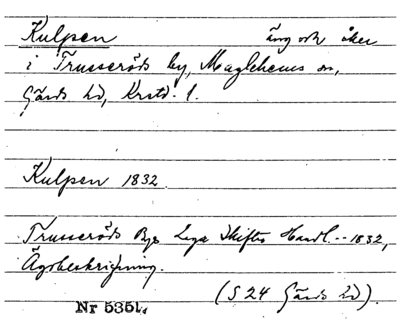 Kulpen äng och åker
i Trusseröds by, Maglehems sn,
Gärds hd, Krstd. l.
Kulpen 1832
Trusseröds Bys Laga Skiftes Handl. -- 1832,
Ägobeskrifning.
(S 24 Gärds hd)
Nr 5351.